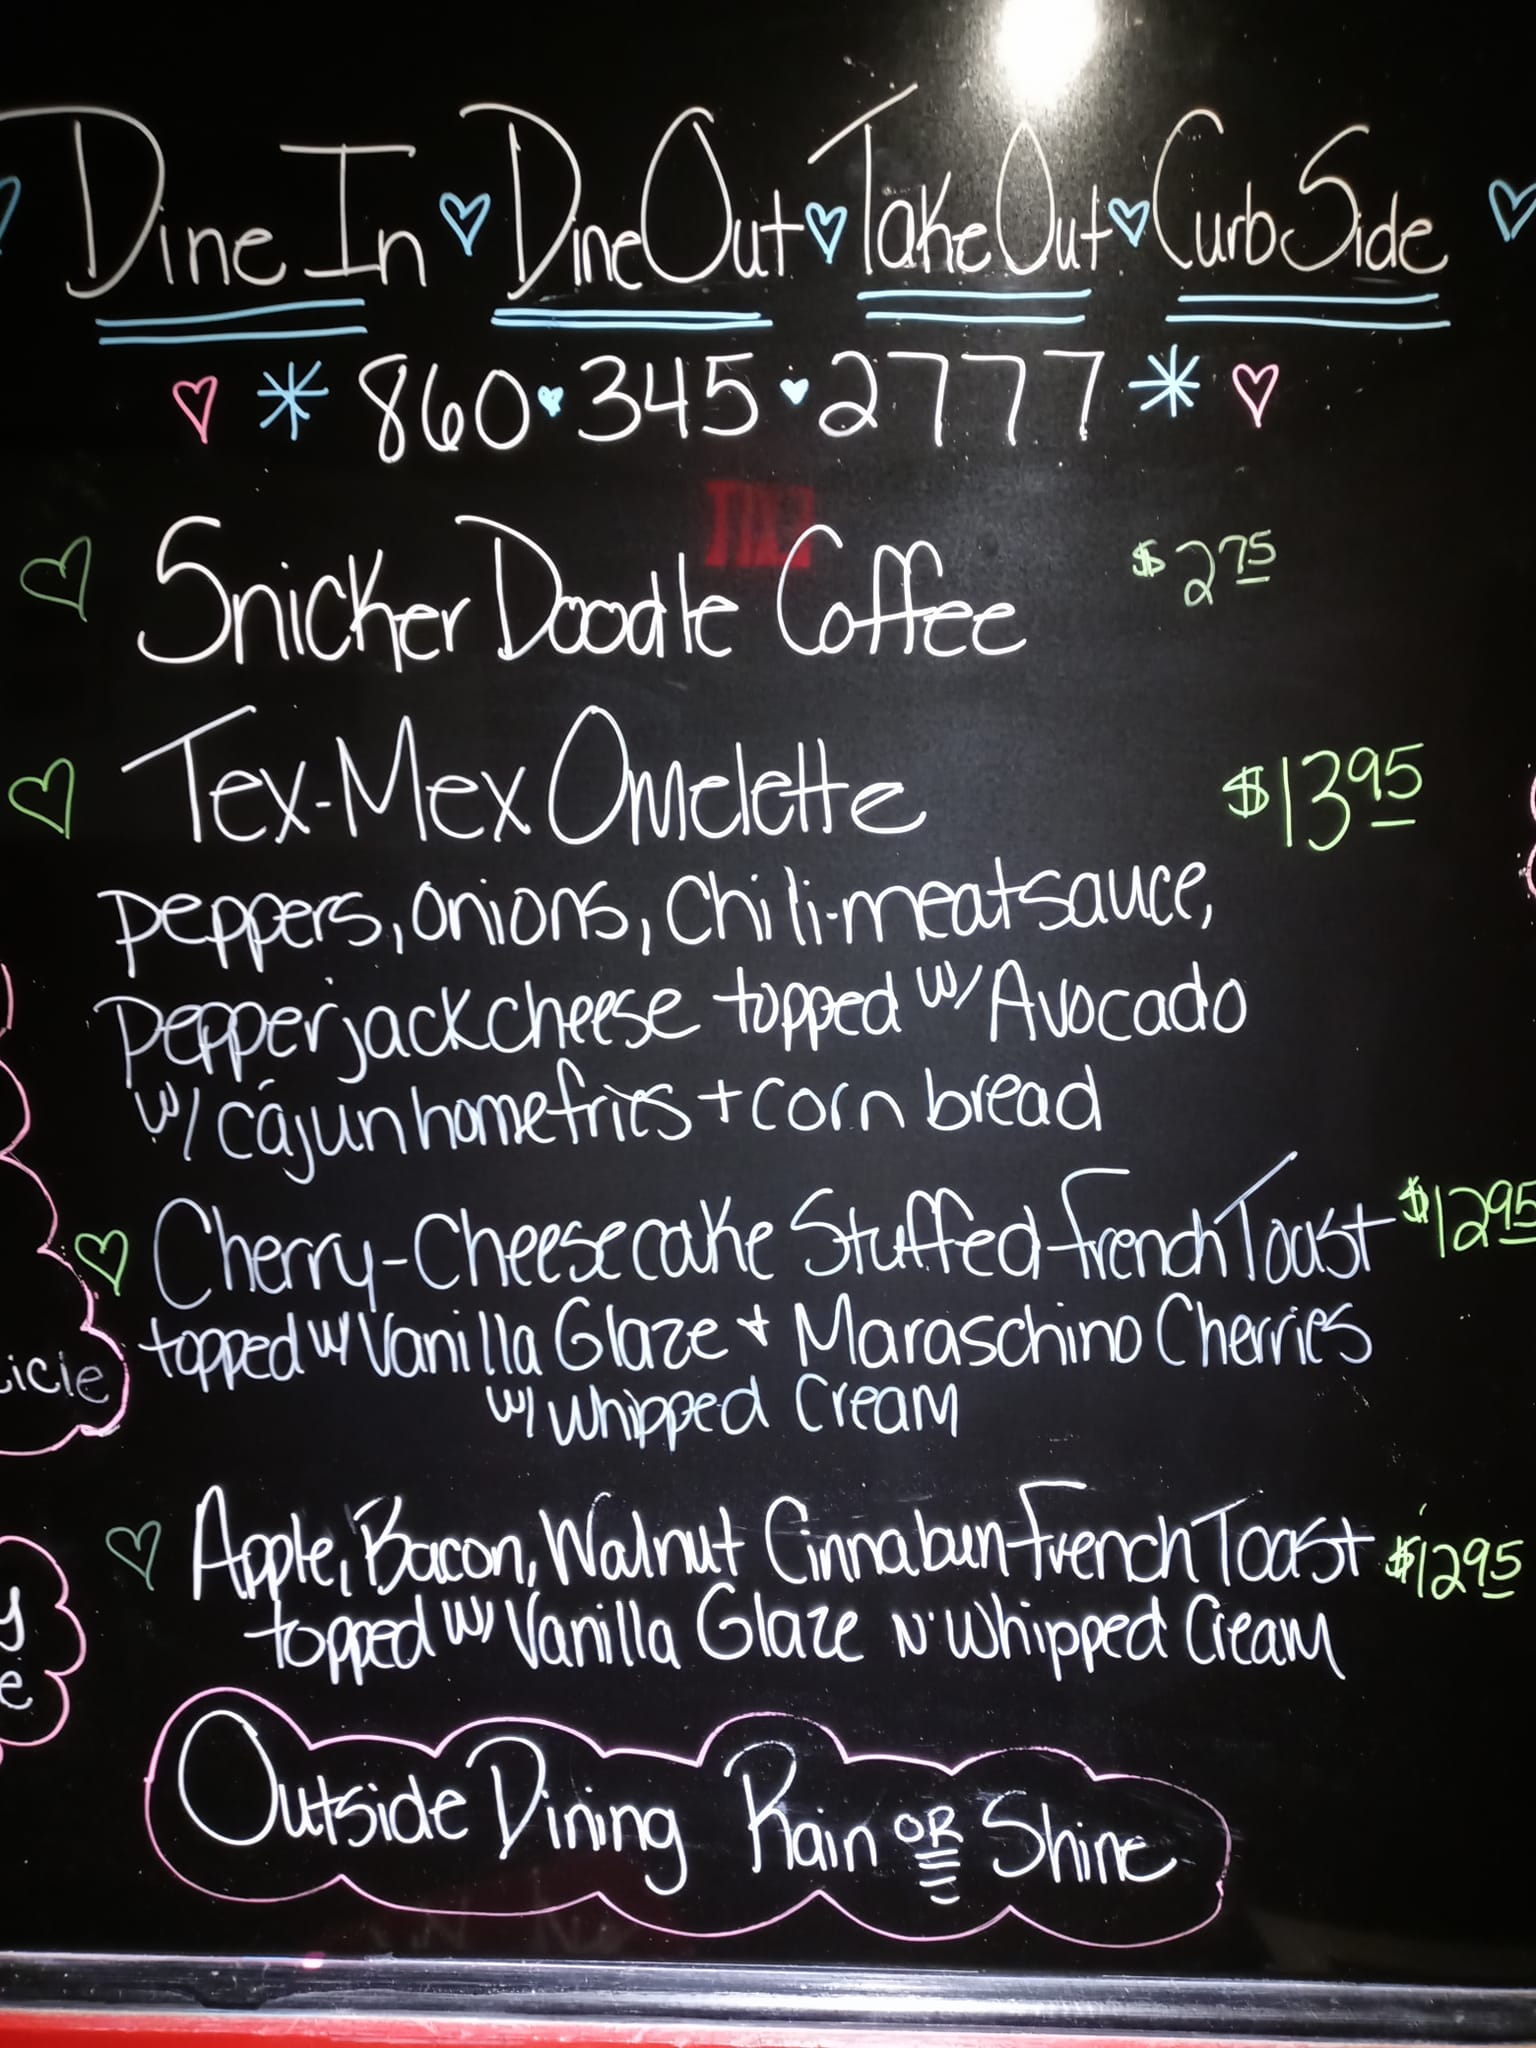 Dine In Dine Out Take Out Curb Side
860 345 2777
Snicker Doodle Coffee $2.75
Tex-Mex Omelette $13.95
peppers, onions, Chili-meatsauce,
pepperjack cheese topped w/ Avocado
w/ cajun homefries + corn bread
Cherry-Cheesecake Stuffed French Toast $12.95
topped w/ Vanilla Glaze + Maraschino Cherries
w/ whipped Cream
icie
Apple, Bacon, Walnut Cinnabun French Toast $12.95
topped w/ Vanilla Glaze N' Whipped Cream
y
e
Outside Dining Rain OR Shine